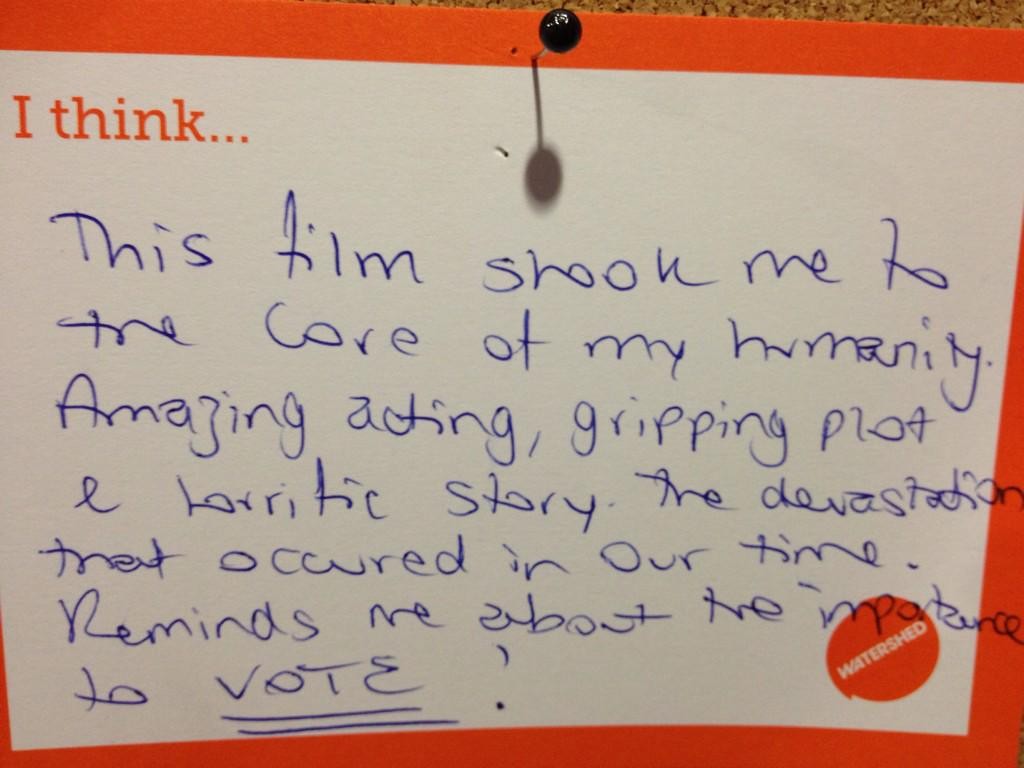 I think...
This film shook me to
the core of my humanity.
Amazing acting, gripping plot
& horrific story. The devastation
that occured in our time.
Reminds me about the importance
to VOTE !
WATERSHED